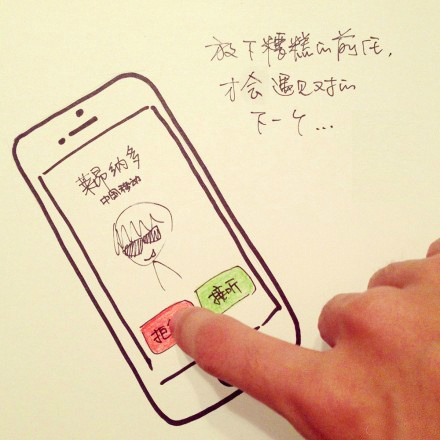 放下糟糕的前任,
才会遇见对的
下一个...
莱昂纳多
中国移动
接听
拒